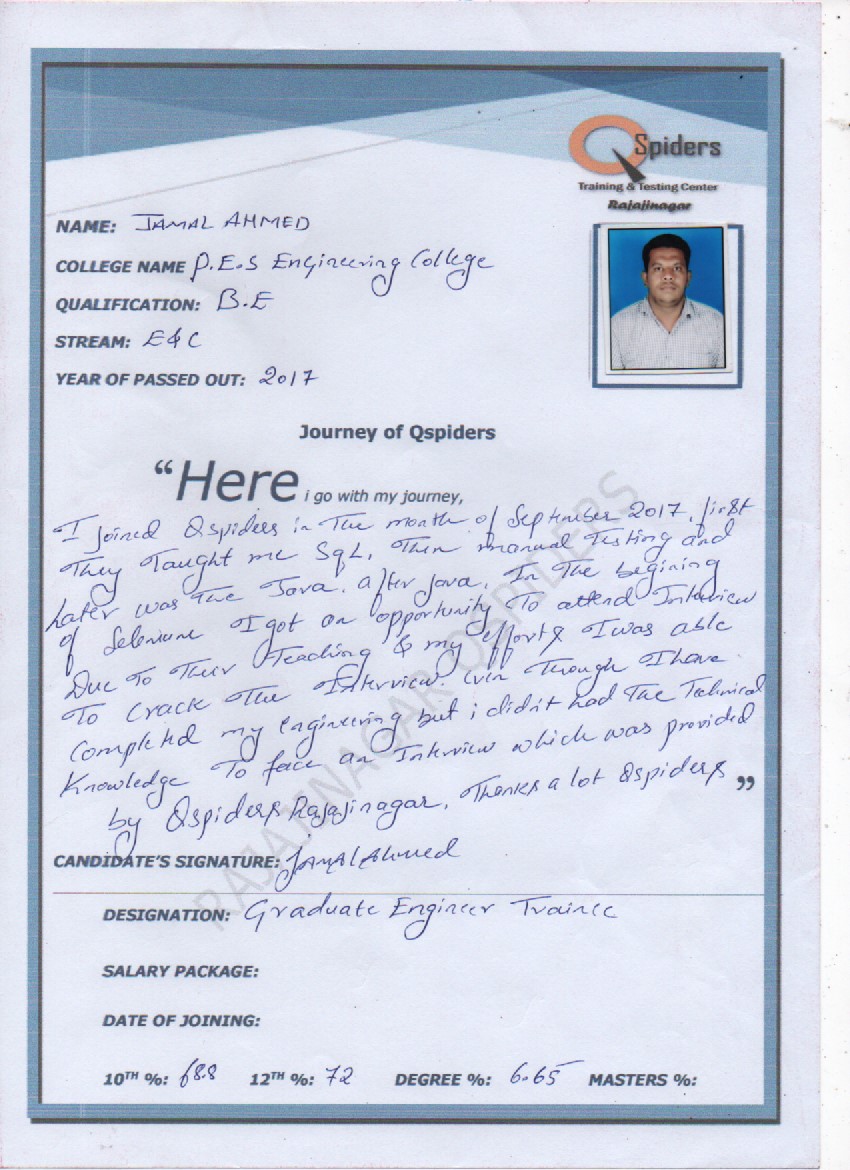 QSpiders
Training & Testing Center
Rajajinagar
NAME: JAMAL AHMED
COLLEGE NAME P.E.S Engineering College
QUALIFICATION: B.E
STREAM: E&C
YEAR OF PASSED OUT: 2017
Journey of Qspiders
“Here i go with my journey,
I joined Qspiders in The month of September 2017, first
They Taught me SqL, Then manual Testing and
Later was The Java. after Java, In The begining
of Selenium I got an opportunity To attend Interview
Due To Their Teaching & my efforts I was able
To Crack The Interview. Even Though I have
Completed my engineering but i didn't had The Technical
Knowledge To face an Interview which was provided
by Qspiders Rajajinagar, Thanks a lot Qspiders ”
RAJAJINAGAR QSPIDERS
CANDIDATE'S SIGNATURE: Jamal Ahmed
DESIGNATION: Graduate Engineer Trainee
SALARY PACKAGE:
DATE OF JOINING:
10TH %: 68.8 12TH %: 72 DEGREE %: 6.65 MASTERS %: